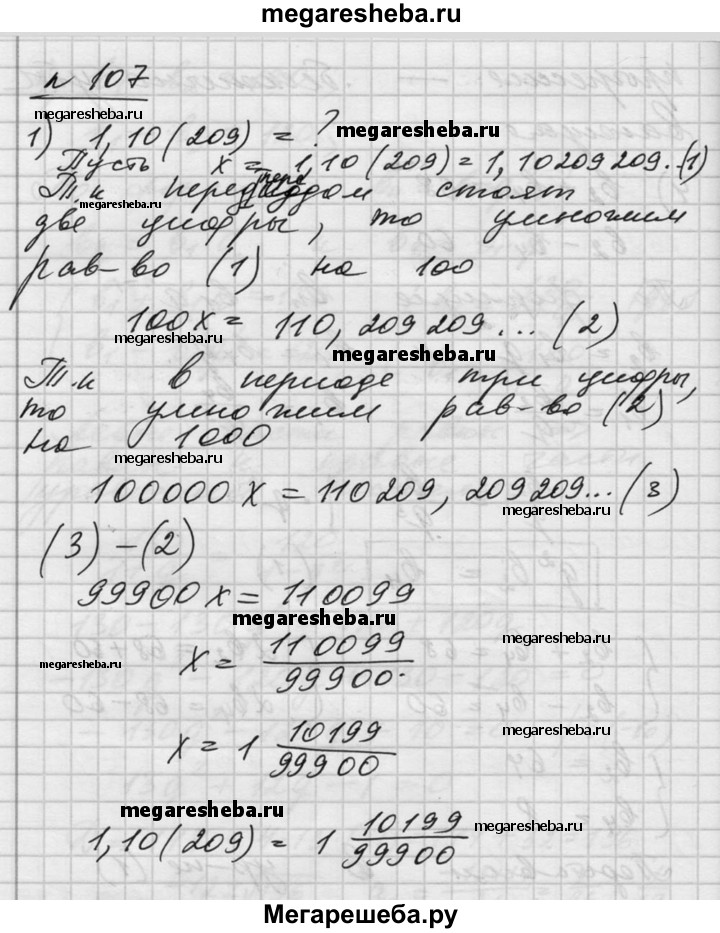 megaresheba.ru
n 107
megaresheba.ru
1) 1,10(209) = ?
megaresheba.ru
Пусть x = 1,10(209) = 1,10209209..(1)
Т.к перед периодом стоят
megaresheba.ru
две цифры, то умножим
рав-во (1) на 100
100x = 110,209209... (2)
megaresheba.ru
megaresheba.ru
Т.к в периоде три цифры,
то умножим рав-во (2)
на 1000
megaresheba.ru
100000x = 110209,209209... (3)
megaresheba.ru
(3) – (2)
99900x = 110099
megaresheba.ru
megaresheba.ru
x = 110099/99900.
megaresheba.ru
x = 1 10199/99900
megaresheba.ru
megaresheba.ru
1,10(209) = 1 10199/99900
megaresheba.ru
Мегарешеба.ру